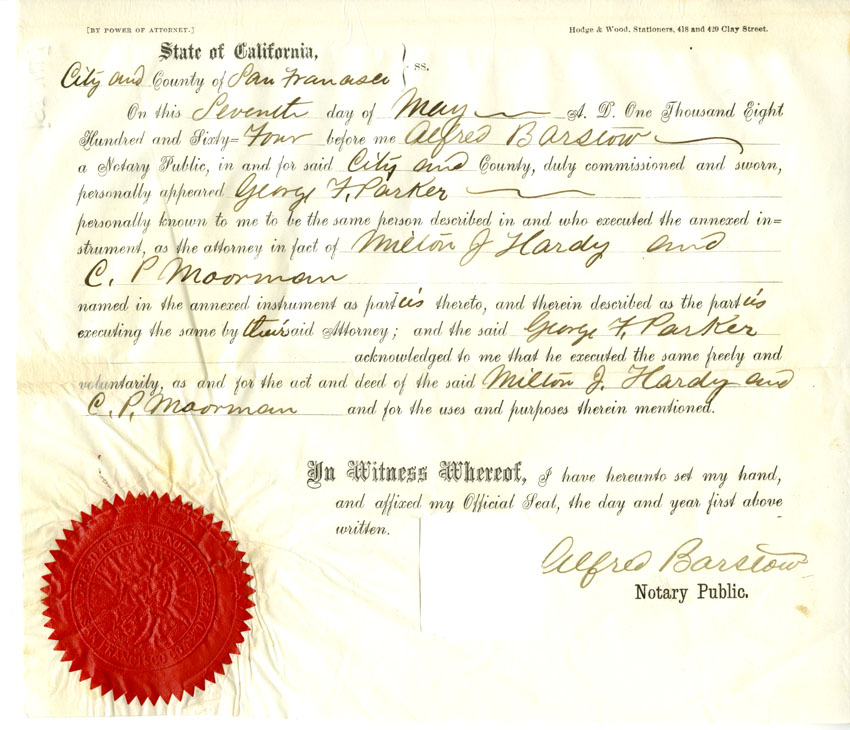 [BY POWER OF ATTORNEY.] Hodge & Wood, Stationers, 418 and 420 Clay Street.
State of California,
City and County of San Francisco } ss.
On this Seventh day of May A. D. One Thousand Eight
Hundred and Sixty=Four before me Alfred Barstow
a Notary Public, in and for said City and County, duly commissioned and sworn,
personally appeared George F. Parker
personally known to me to be the same person described in and who executed the annexed in=
strument, as the attorney in fact of Milton J Hardy and
C. P Moorman
named in the annexed instrument as parties thereto, and therein described as the parties
executing the same by their said Attorney; and the said George F. Parker
acknowledged to me that he executed the same freely and
voluntarily, as and for the act and deed of the said Milton J. Hardy and
C. P. Moorman and for the uses and purposes therein mentioned.
In Witness Whereof, I have hereunto set my hand,
and affixed my Official Seal, the day and year first above
written.
Alfred Barstow
Notary Public.